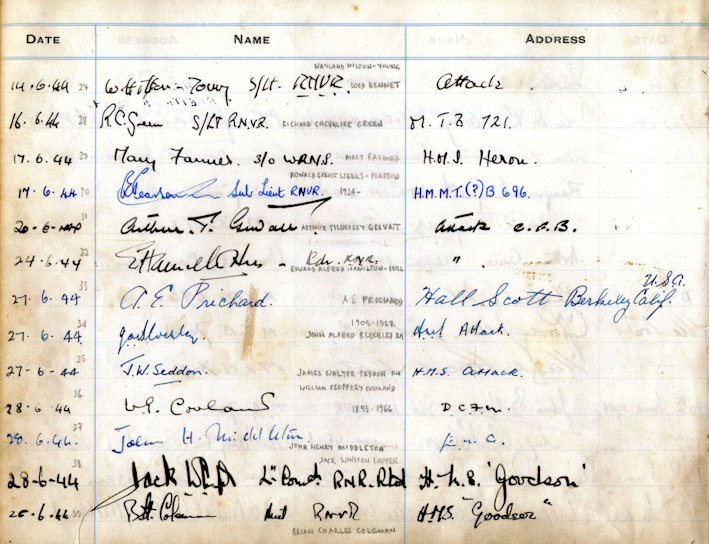 DATE NAME ADDRESS
WAYLAND HILTON-YOUNG
14.6.44 27 W Hilton-Young S/Lt. RNVR. LORD KENNET Attack
16.6.44 28 R.C. Green S/LT R.N.V.R. RICHARD CHEVALIRE GREEN M.T.B 721.
17.6.44 29 Mary Farmer. 3/0 W.R.N.S. MARY FARMER H.M.S. Heron.
RONALD ERNEST WEEKS-PEARSON
17.6.44 30 Pearson Sub Lieut RNVR. 1924- H.M.M.T.(?)B 696.
31 Arthur T. ARTHUR TILDESLEY Attack C.F.B.
24.6.44 32 Cdr. R.N.R. "
EDWARD ALFRED HAMILTON-HILL
U.S.A.
27.6.44 33 A.E. Prichard. A E PRICHARD Hall Scott Berkeley Calif.
1905-1967
27.6.44 34 JOHN ALFRED RN Attack.
27-6-44 35 J.W. Seddon. JAMES WALTER SEDDON RN H.M.S. ATTACK.
WILLIAM GEOFFREY COWLAND
28.6.44 36 Cowland 1895-1966
28.6.44. 37 John H. Middleton.
JOHN HENRY MIDDLETON
JACK WINSTON COOPER
28-6-44 38 Jack R.N.R. Rtd H.M.S. 'Goodson'
6.44 39 B.H. Coleman RNVR HMS "Goodson"
BRIAN CHARLES COLEMAN